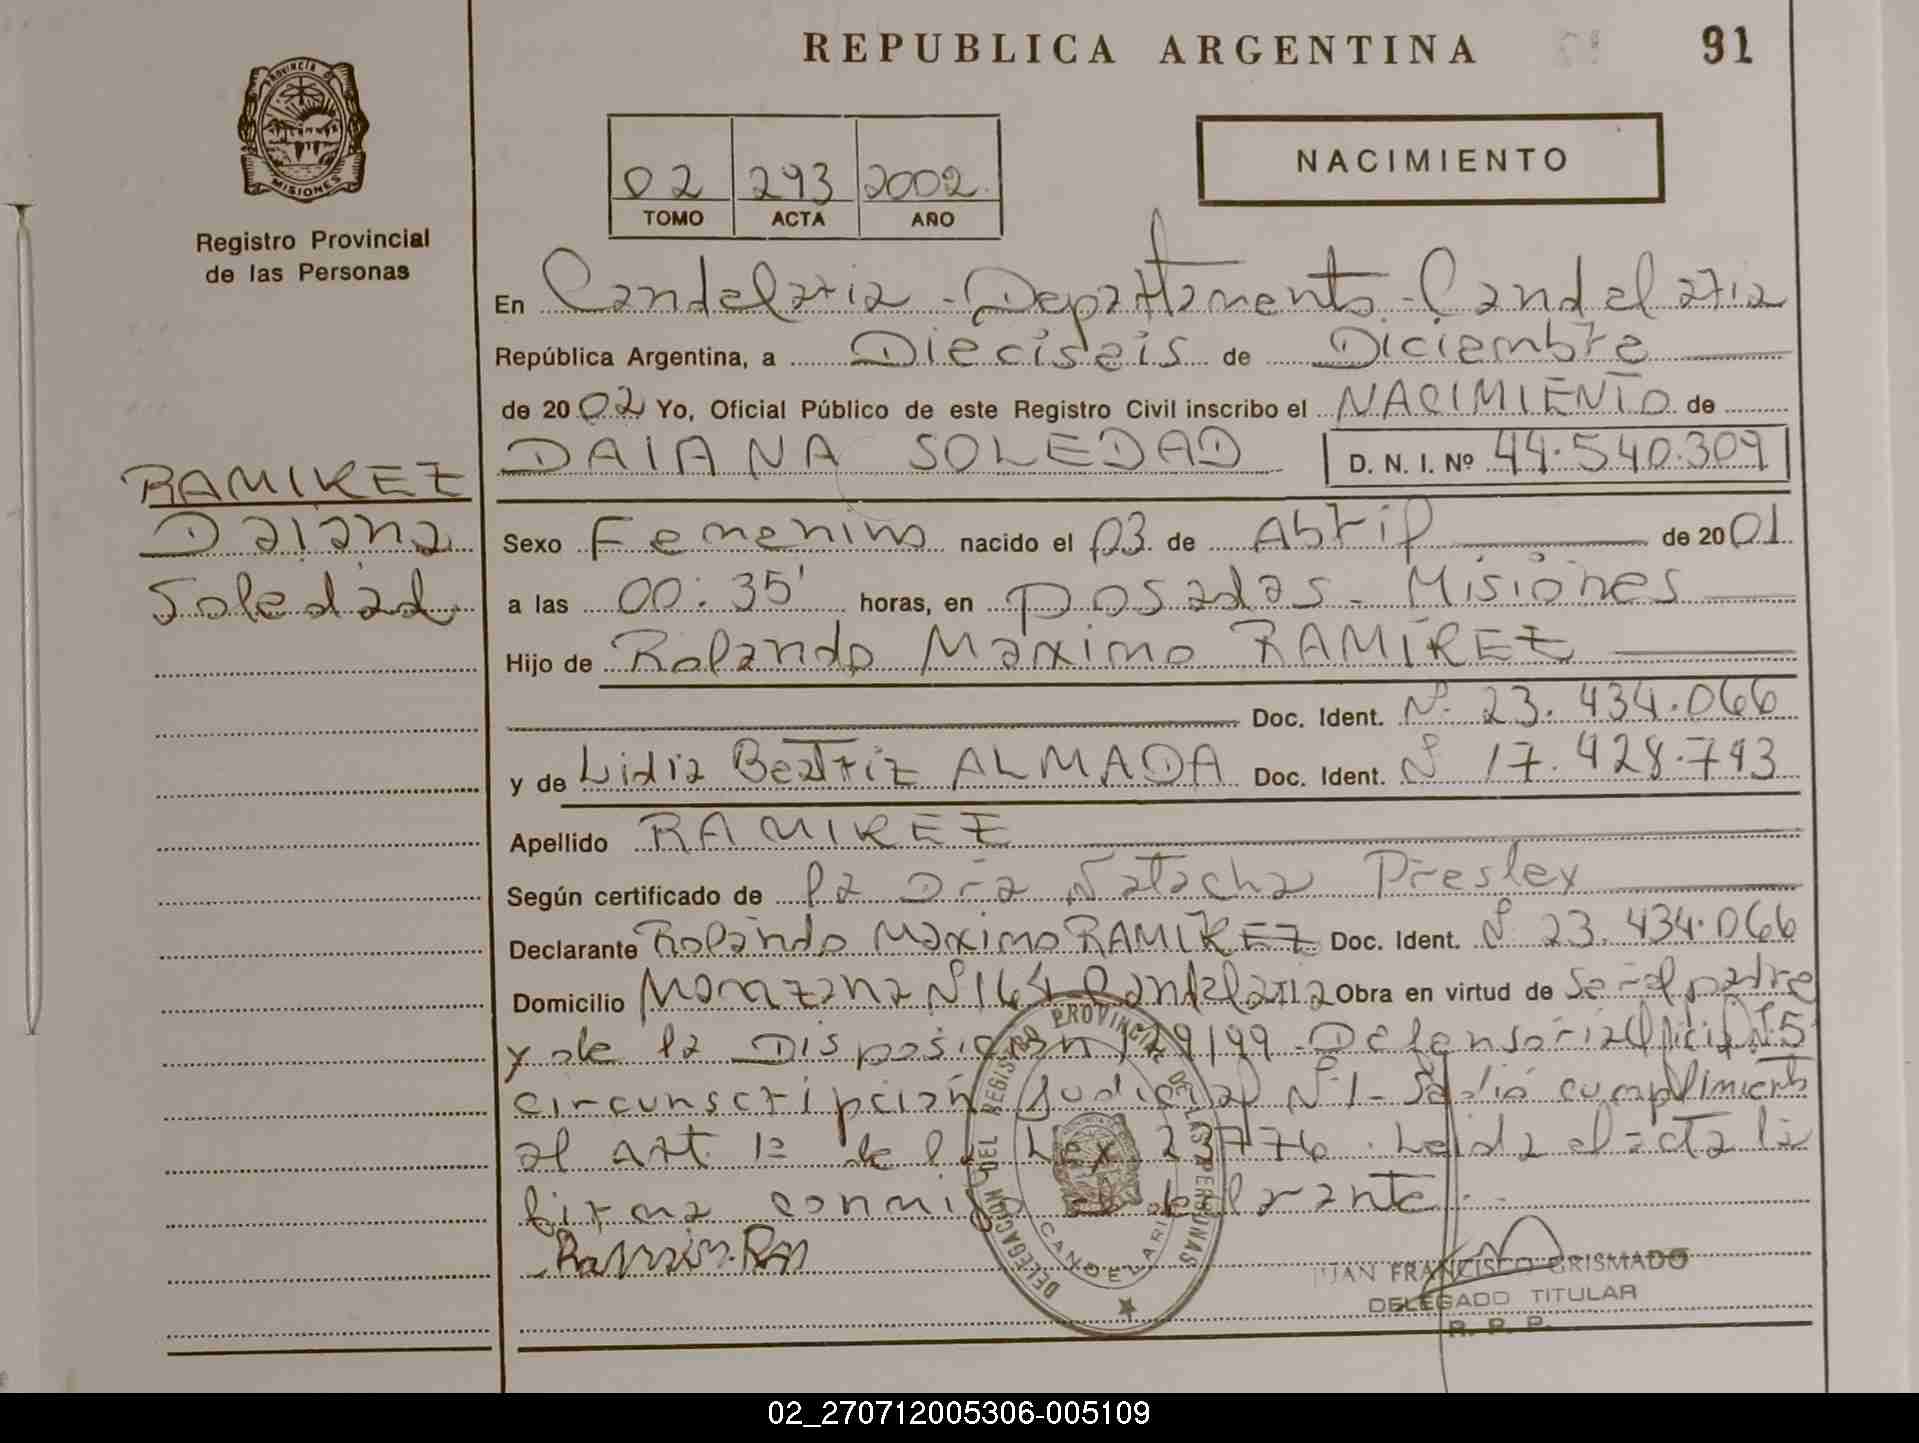 REPUBLICA ARGENTINA
91
PROVINCIA DE
MISIONES
Registro Provincial
de las Personas
02 293 2002
TOMO ACTA AÑO
NACIMIENTO
En Candelaria - Departamento - Candelaria
República Argentina, a Dieciseis de Diciembre
de 2002 Yo, Oficial Público de este Registro Civil inscribo el NACIMIENTO de
DAIANA SOLEDAD D. N. I. Nº 44.540.309
RAMIREZ
Daiana
Soledad
Sexo Femenino nacido el 03 de Abril de 2001
a las 00:35' horas, en Posadas - Misiones
Hijo de Rolando Maximo RAMIREZ
Doc. Ident. Nº 23.434.066
y de Lidia Beatriz ALMADA Doc. Ident. Nº 17.428.743
Apellido RAMIREZ
Según certificado de la Dra Natacha Presley
Declarante Rolando Maximo RAMIREZ Doc. Ident. Nº 23.434.066
Domicilio Manzana Nº 164 Candelaria Obra en virtud de ser el padre
y de la Disposición 129/99 - Defensoria Oficial Nº 5
circunscripción Judicial Nº 1 - Se dió cumplimiento
al Art. 1º de la Ley 23776. Leida el acta la
firma conmigo el declarante
DELEGACION DEL REGISTRO PROVINCIAL DE LAS PERSONAS
CANDELARIA
JUAN FRANCISCO GRISMADO
DELEGADO TITULAR
R. P. P.
02_270712005306-005109